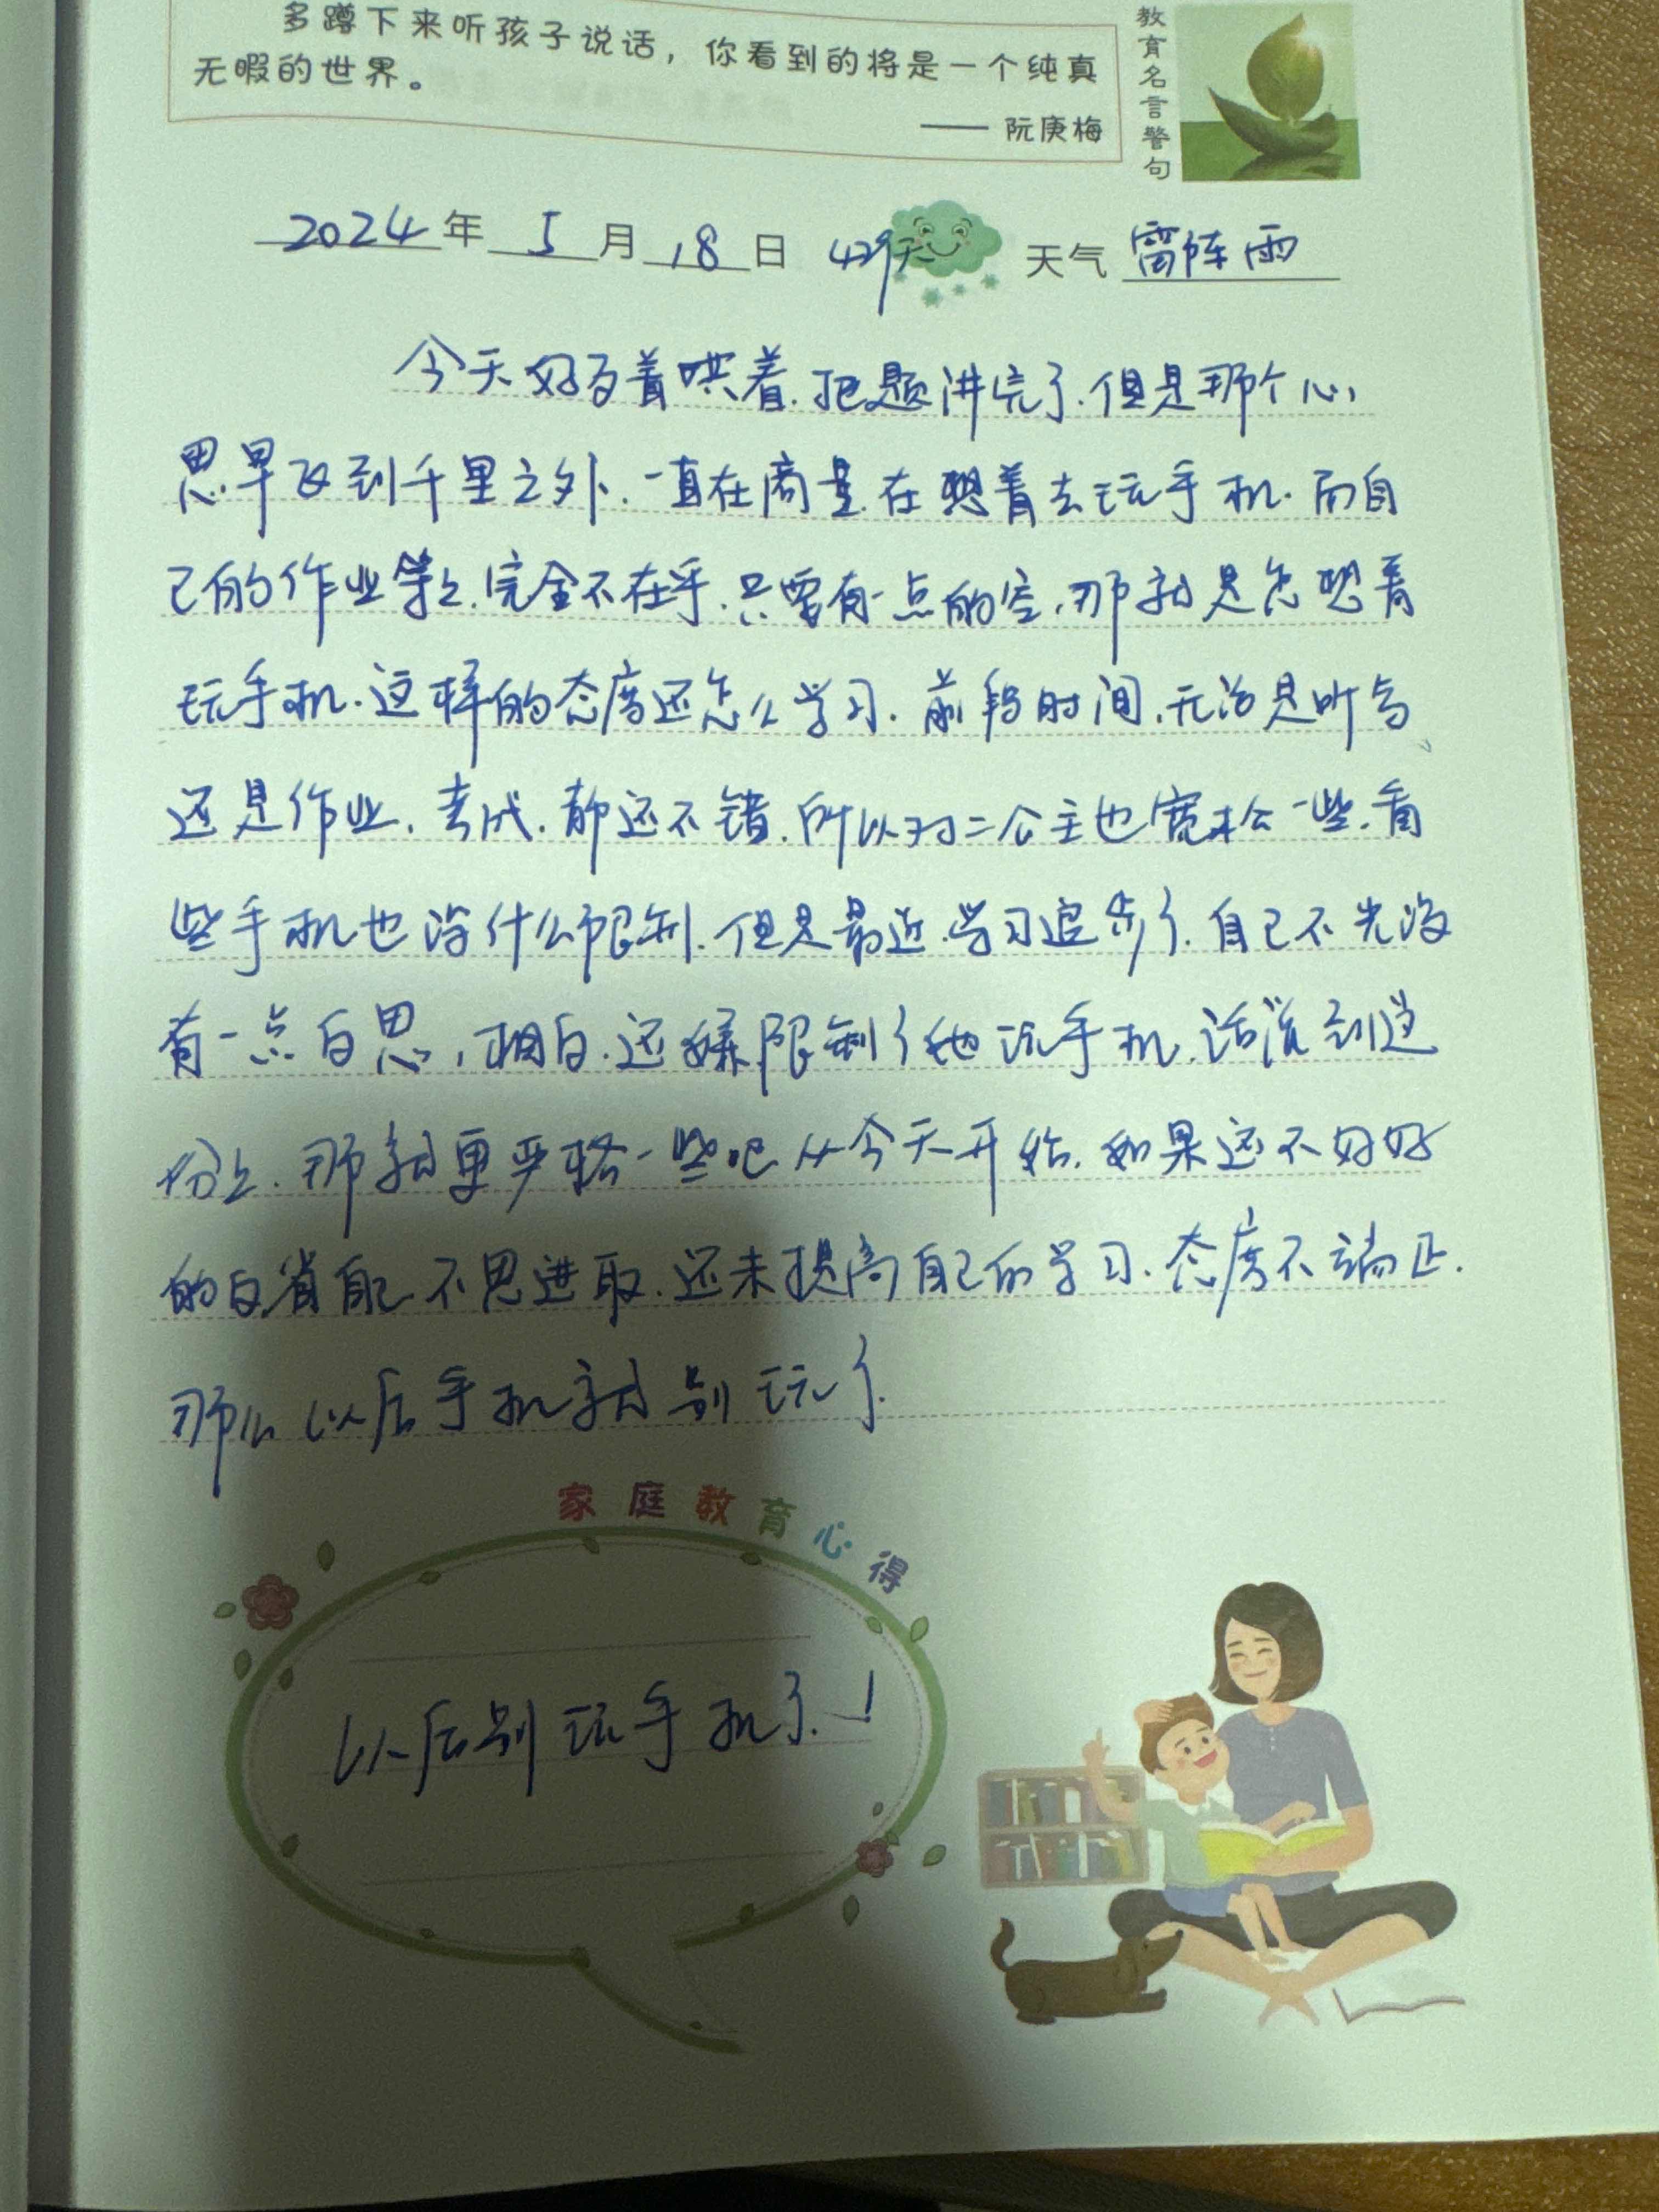 多蹲下来听孩子说话，你看到的将是一个纯真
无暇的世界。
—— 阮庚梅
教育名言警句
2024年5月18日 429天 天气 雷阵雨
今天好歹着哄着.把题讲完了.但是那个心
思早飞到千里之外.一直在商量.在想着去玩手机.而自
己的作业等等.完全不在乎.只要有一点的空,那就是总想着
玩手机.这样的态度还怎么学习.前段时间,无论是听写
还是作业.考试.都还不错.所以对二公主也宽松一些.看
些手机也没什么限制.但是最近.学习退步了.自己不光没
有一点自思,相自.还嫌限制了她玩手机.话说到这
份上.那就更严格一些吧 从今天开始.如果还不好好
的自省自己 不思进取.还未提高自己的学习.态度不端正.
那么以后手机就别玩了.
家庭教育心得
以后别玩手机了.!